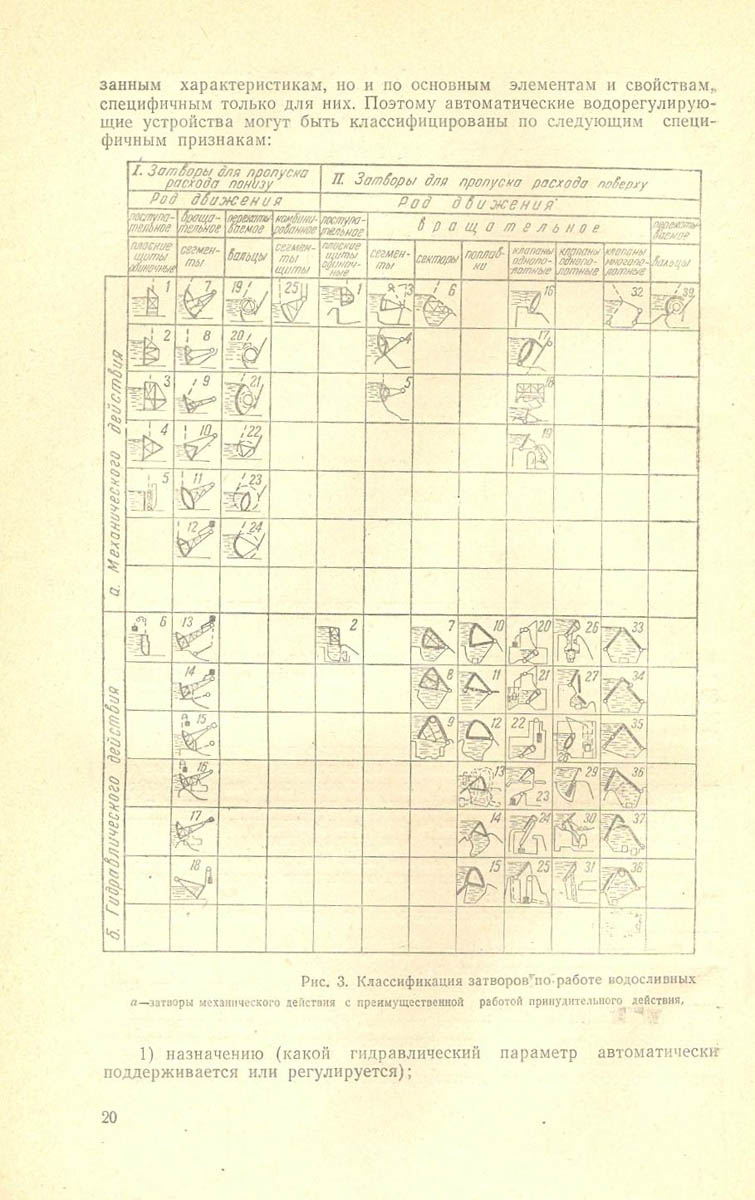 занным характеристикам, но и по основным элементам и свойствам,
специфичным только для них. Поэтому автоматические водорегулирую-
щие устройства могут быть классифицированы по следующим специ-
фичным признакам:
I. Затворы для пропуска расхода понизу
II. Затворы для пропуска расхода поверху
Род движения
Род движения
поступа-тельное
враща-тельное
перекаты-ваемое
комбини-рованное
поступа-тельное
вращательное
перекаты-ваемое
плоские щиты одиночные
сегмен-ты
вальцы
сегмен-ты щиты
плоские щиты одиноч-ные
сегмен-ты
секторы
поплав-ки
клапаны однопо-лотные
клапаны однопо-лотные
клапаны многопо-лотные
вальцы
а. Механического действия
1 7 19 25 1 3 6 16 32 39
2 8 20 4 17
3 9 21 5 18
4 10 22 19
5 11 23
12 24
б. Гидравлического действия
6 13 2 7 10 20 26 33
14 8 11 21 27 34
15 9 12 22 28 35
16 13 23 29 36
17 14 24 30 37
18 15 25 31 38
Рис. 3. Классификация затворов по работе водосливных
а—затворы механического действия с преимущественной работой принудительного действия,
1) назначению (какой гидравлический параметр автоматически
поддерживается или регулируется);
20